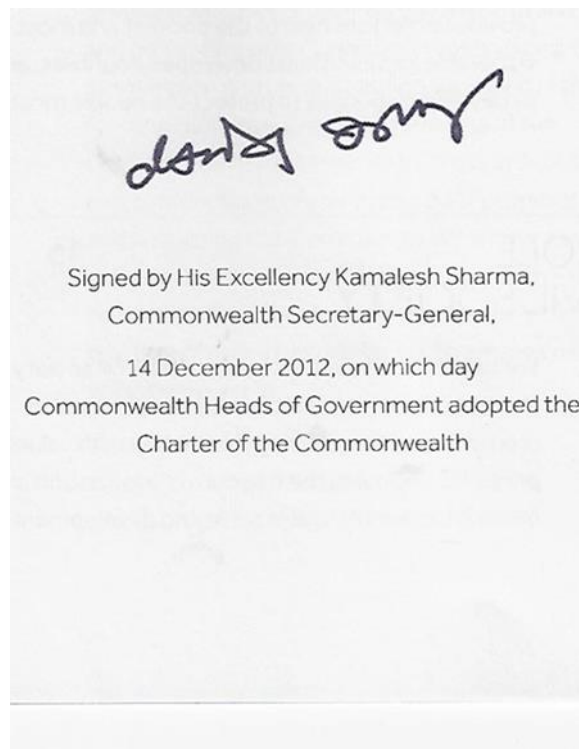 Signed by His Excellency Kamalesh Sharma,
Commonwealth Secretary-General,
14 December 2012, on which day
Commonwealth Heads of Government adopted the
Charter of the Commonwealth